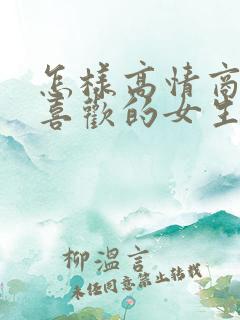 怎樣高情商
喜歡的女生
柳溫言
未經同意禁止轉載